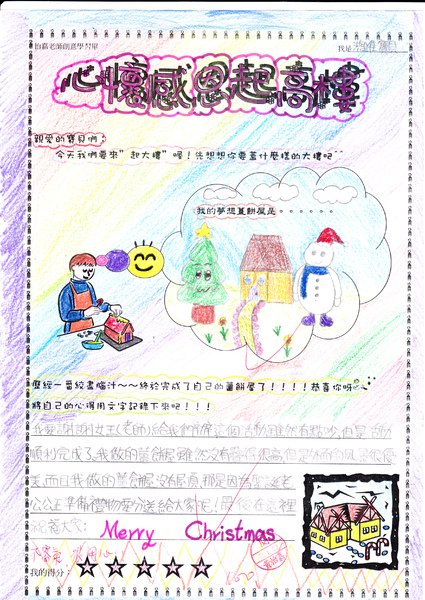 怡嘉老師創意學習單
我是
心懷感恩起高樓
親愛的寶貝們:
今天我們要來"起大樓"喔!先想想你要蓋什麼樣的大樓吧~~
我的夢想薑餅屋是。。。。。。。
歷經一番絞盡腦汁~~終於完成了自己的薑餅屋了!!!!恭喜你呀~
將自己的心得用文字記錄下來吧!!!
我要謝謝女王(老師)給我們做這個活動雖然有點吵但是
順利完成了我做的薑餅屋雖然沒有很高但是外面的風景很優
美而且我做的薑餅屋沒有屋頂那是因為聖誕老
公公準備禮物要分送給大家呢!最後在這裡
祝福大家:
Merry Christmas
我的得分:
100